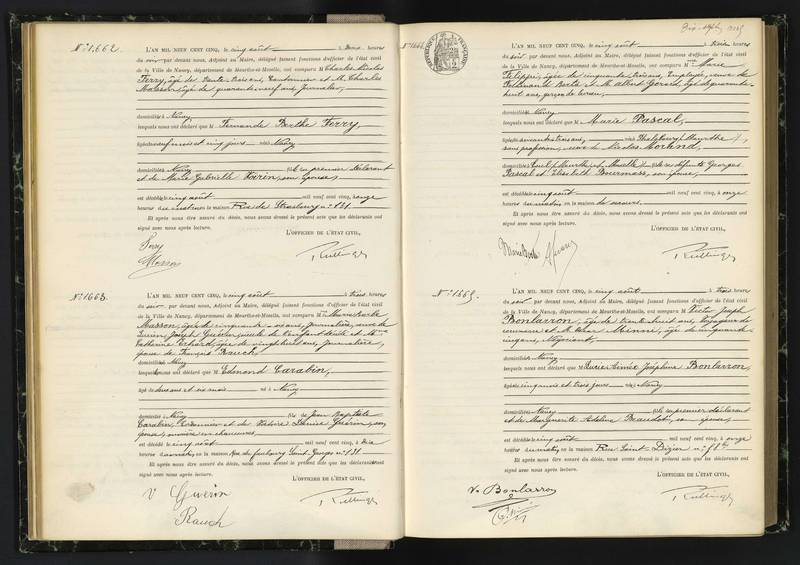 N° 1.662.
L'AN MIL NEUF CENT CINQ, le cinq août à heures
du soir par devant nous, Adjoint au Maire, délégué faisant fonctions d'officier de l'état civil
de la Ville de Nancy, département de Meurthe-et-Moselle, ont comparu M. Charles Nicolas
Ferry, âgé de trente trois ans, Cantonnier et M. Charles
âgé de quarante neuf ans, Journalier,
domiciliés à Nancy
lesquels nous ont déclaré que M Fernande Berthe Ferry,
âgée de neuf mois et cinq jours née à Nancy
domiciliée à Nancy fille du premier déclarant
et de Marie Gabrielle son épouse,
est décédée le cinq août mil neuf cent cinq,
heures du matin en la maison Rue de Strasbourg n° 131.
Et après nous être assuré du décès, nous avons dressé le présent acte que les déclarants ont
signé avec nous après lecture.
L'OFFICIER DE L'ÉTAT CIVIL,
Ferry
N° 1.663.
L'AN MIL NEUF CENT CINQ, le cinq août à trois heures
du soir par devant nous, Adjoint au Maire, délégué faisant fonctions d'officier de l'état civil
de la Ville de Nancy, département de Meurthe-et-Moselle, ont comparu M
Masson, âgée de cinquante ans, Journalière, veuve de
Joseph Guérin, de l'enfant et
Catherine âgée de vingt huit ans, Journalière,
épouse de François Rauch,
domiciliés à Nancy
lesquels nous ont déclaré que M Edmond Carabin,
âgé de deux ans et six mois né à Nancy
domicilié à Nancy fils de Jean Baptiste
Carabin, Cordonnier et de Victoire Guérin, son
épouse, ouvrière en chaussures,
est décédé le cinq août mil neuf cent cinq, à dix
heures du matin, en la maison Rue du faubourg Saint Georges n° 131.
Et après nous être assuré du décès, nous avons dressé le présent acte que les déclarants ont
signé avec nous après lecture.
L'OFFICIER DE L'ÉTAT CIVIL,
V Guérin
Rauch
N° 1664
RÉPUBLIQUE FRANÇAISE
L'AN MIL NEUF CENT CINQ, le cinq août à trois heures
du soir par devant nous, Adjoint au Maire, délégué faisant fonctions d'officier de l'état civil
de la Ville de Nancy, département de Meurthe-et-Moselle, ont comparu Mme Marie
âgée de cinquante trois ans, Employée, veuve de
et M. Albert Gérard, âgé de quarante
huit ans, garçon de bureau,
domiciliés à Nancy
lesquels nous ont déclaré que M Marie Pascal,
âgée de soixante treize ans, née à Phalsbourg (Meurthe),
sans profession, veuve de Nicolas Morand,
domiciliée à Toul (Meurthe et Moselle) fille de défunts Georges
Pascal et Elisabeth son épouse,
est décédée le cinq août mil neuf cent cinq, à onze
heures du matin en la maison de secours.
Et après nous être assuré du décès, nous avons dressé le présent acte que les déclarants ont
signé avec nous après lecture.
L'OFFICIER DE L'ÉTAT CIVIL,
N° 1665.
L'AN MIL NEUF CENT CINQ, le cinq août à trois heures
du soir par devant nous, Adjoint au Maire, délégué faisant fonctions d'officier de l'état civil
de la Ville de Nancy, département de Meurthe-et-Moselle, ont comparu M. Victor Joseph
Bonlarron, âgé de trente huit ans, Voyageur de
commerce et M. âgé de cinquante
cinq ans, Négociant
domiciliés à Nancy
lesquels nous ont déclaré que Aimée Joséphine Bonlarron,
âgée de cinq mois et trois jours née à Nancy
domiciliée à Nancy fille du premier déclarant
et de Marguerite Adeline son épouse,
est décédée le cinq août mil neuf cent cinq, à onze
heures du matin, en la maison Rue Saint Dizier n°
Et après nous être assuré du décès, nous avons dressé le présent acte que les déclarants ont
signé avec nous après lecture.
L'OFFICIER DE L'ÉTAT CIVIL,
V. Bonlarron